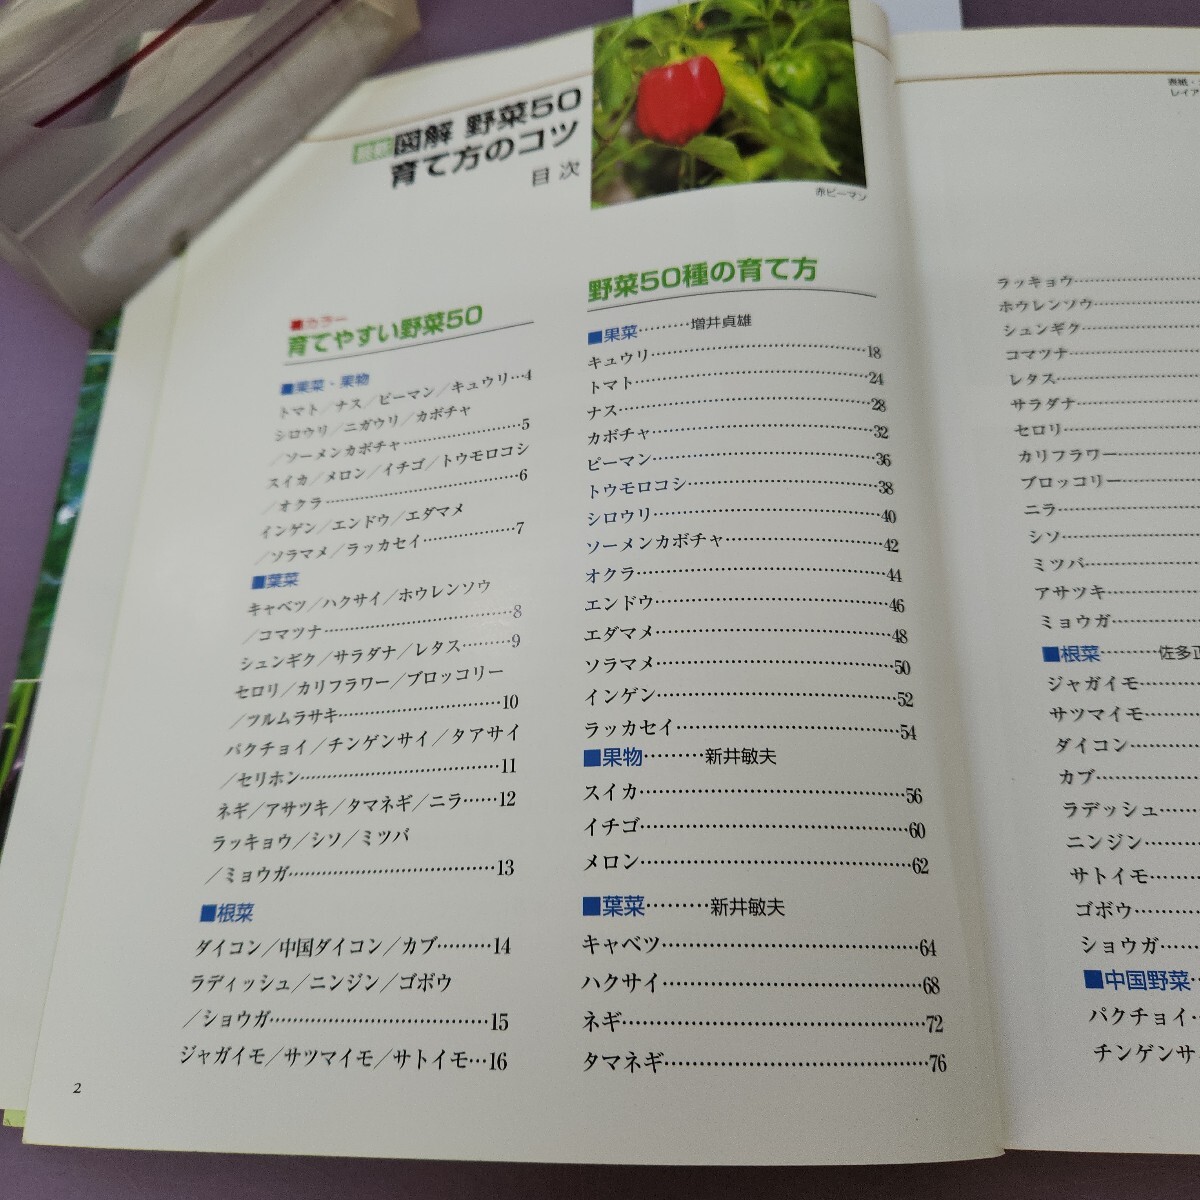 最新 図解 野菜50
育て方のコツ
目次
赤ピーマン
■カラー
育てやすい野菜50
■果菜・果物
トマト／ナス／ピーマン／キュウリ…4
シロウリ／ニガウリ／カボチャ
／ソーメンカボチャ……………………5
スイカ／メロン／イチゴ／トウモロコシ
／オクラ……………………………6
インゲン／エンドウ／エダマメ
／ソラマメ／ラッカセイ……………7
■葉菜
キャベツ／ハクサイ／ホウレンソウ
／コマツナ……………………………8
シュンギク／サラダナ／レタス………9
セロリ／カリフラワー／ブロッコリー
／ツルムラサキ………………………10
パクチョイ／チンゲンサイ／タアサイ
／セリホン……………………………11
ネギ／アサツキ／タマネギ／ニラ……12
ラッキョウ／シソ／ミツバ
／ミョウガ……………………………13
■根菜
ダイコン／中国ダイコン／カブ………14
ラディッシュ／ニンジン／ゴボウ
／ショウガ……………………………15
ジャガイモ／サツマイモ／サトイモ…16
2
野菜50種の育て方
■果菜………増井貞雄
キュウリ……………………………18
トマト………………………………24
ナス…………………………………28
カボチャ……………………………32
ピーマン……………………………36
トウモロコシ………………………38
シロウリ……………………………40
ソーメンカボチャ…………………42
オクラ………………………………44
エンドウ……………………………46
エダマメ……………………………48
ソラマメ……………………………50
インゲン……………………………52
ラッカセイ…………………………54
■果物………新井敏夫
スイカ………………………………56
イチゴ………………………………60
メロン………………………………62
■葉菜………新井敏夫
キャベツ……………………………64
ハクサイ……………………………68
ネギ…………………………………72
タマネギ……………………………76
表紙・
レイア
ラッキョウ………………
ホウレンソウ……………
シュンギク………………
コマツナ…………………
レタス……………………
サラダナ…………………
セロリ……………………
カリフラワー……………
ブロッコリー……………
ニラ………………………
シソ………………………
ミツバ……………………
アサツキ…………………
ミョウガ…………………
■根菜………佐多正
ジャガイモ………
サツマイモ………
ダイコン…………
カブ………………
ラデッシュ………
ニンジン…………
サトイモ…………
ゴボウ……………
ショウガ…………
■中国野菜…
パクチョイ…
チンゲンサ